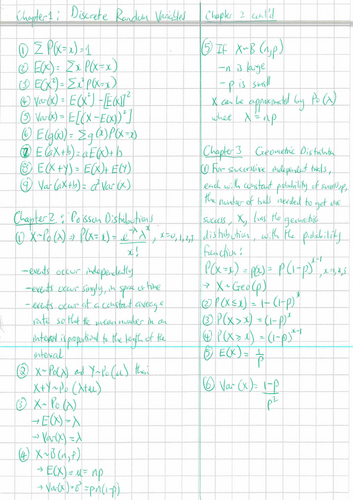 Chapter 1: Discrete Random Variables
① ΣP(X=x)=1
② E(X)= Σx P(X=x)
③ E(X²)= Σx² P(X=x)
④ Var(X)= E(X²)-[E(X)]²
⑤ Var(X)= E[(X-E(X))²]
⑥ E(g(X))= Σg(x)P(X=x)
⑦ E(aX+b)=aE(X)+b
⑧ E(X+Y)=E(X)+E(Y)
⑨ Var(aX+b)=a²Var(X)
Chapter 2: Poisson Distributions
① X~Po(λ) → P(X=x)= e^-λ λ^x / x! , x=0,1,2,3
-events occur independently
-events occur singly, in space or time
-events occur at a constant average
rate so that the mean number in an
interval is proportional to the length of the
interval
② X~Po(λ) and Y~Po(μ) then
X+Y~Po(λ+μ)
③ X~Po(λ)
→ E(X)=λ
→ Var(X)=λ
④ X~B(n,p)
→ E(X)=μ= np
→ Var(X)=σ²=pn(1-p)
Chapter 2 cont'd
⑤ If X~B(n,p)
-n is large
-p is small
X can be approximated by Po(λ)
where λ=np
Chapter 3 Geometric Distribution
① For successive independent trials,
each with constant probability of success p,
the number of trials needed to get one
success, X, has the geometric
distribution, with the probability
function:
P(X=x)=p(x)= p(1-p)^x-1, x=1,2,3
→ X~Geo(p)
② P(X≤x)= 1-(1-p)^x
③ P(X>x)=(1-p)^x
④ P(X≥x)=(1-p)^x-1
⑤ E(X)= 1/p
⑥ Var(x)= 1-p / p²